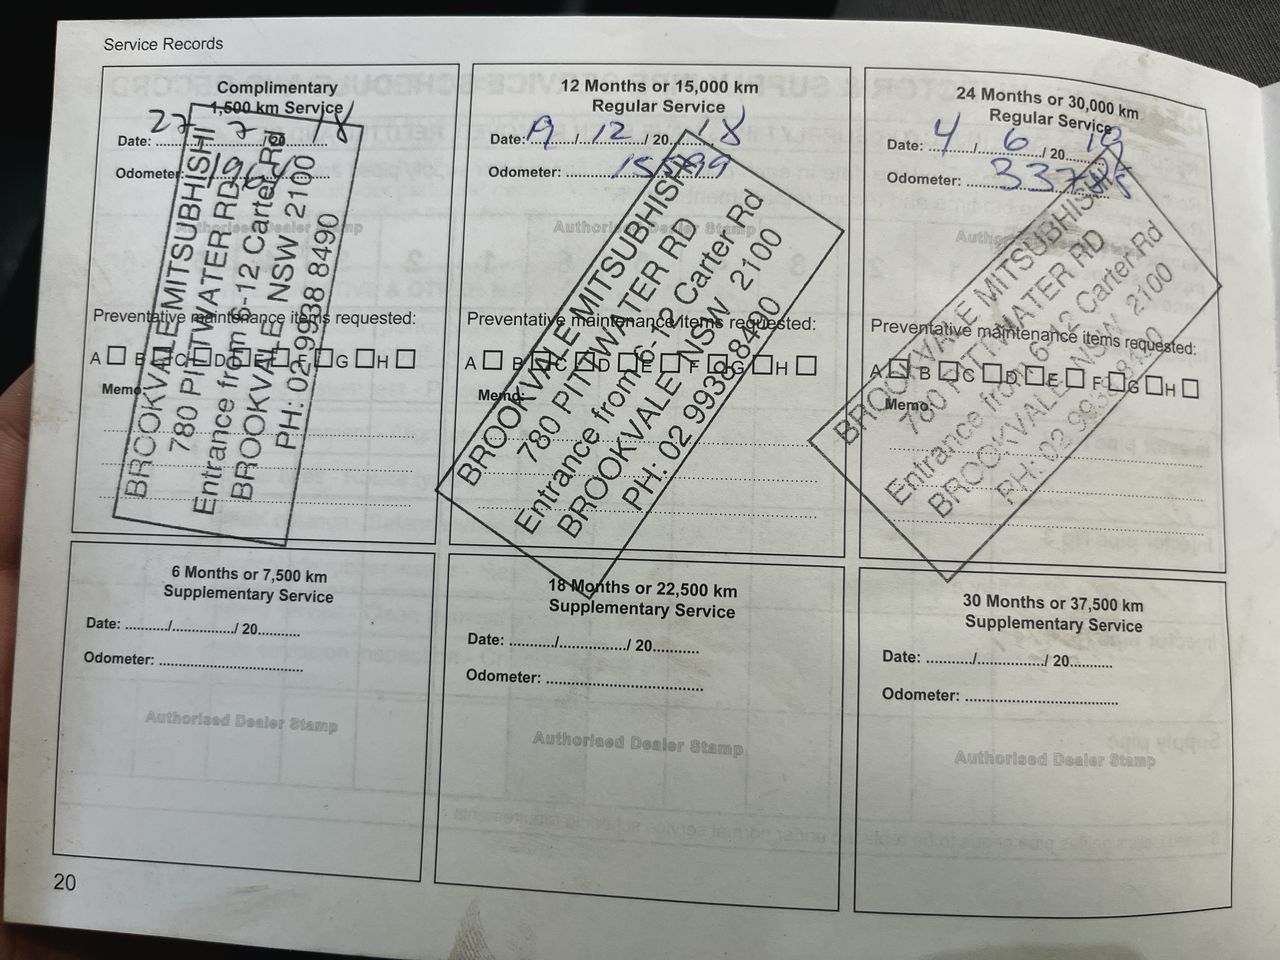 Service Records
Complimentary
1,500 km Service
Date: 27/7/2018
Odometer:
BROOKVALE MITSUBHISHI
780 PITTWATER RD
Entrance from 6-12 Carter Rd
BROOKVALE NSW 2100
PH: 02 9938 8490
Authorised Dealer Stamp
Preventative maintenance items requested:
A B C D E F G H
Memo:
12 Months or 15,000 km
Regular Service
Date: 19/12/2018
Odometer: 15599
BROOKVALE MITSUBHISHI
780 PITTWATER RD
Entrance from 6-12 Carter Rd
BROOKVALE NSW 2100
PH: 02 9938 8490
Authorised Dealer Stamp
Preventative maintenance items requested:
A B C D E F G H
Memo:
24 Months or 30,000 km
Regular Service
Date: 4/6/2019
Odometer:
BROOKVALE MITSUBHISHI
780 PITTWATER RD
Entrance from 6-12 Carter Rd
BROOKVALE NSW 2100
PH: 02 9938 8490
Preventative maintenance items requested:
A B C D E F G H
Memo:
6 Months or 7,500 km
Supplementary Service
Date: ........../................/ 20...........
Odometer: ....................................
Authorised Dealer Stamp
18 Months or 22,500 km
Supplementary Service
Date: ........../................/ 20...........
Odometer: ........................................
Authorised Dealer Stamp
30 Months or 37,500 km
Supplementary Service
Date: ........../................/ 20...........
Odometer: .......................................
Authorised Dealer Stamp
20